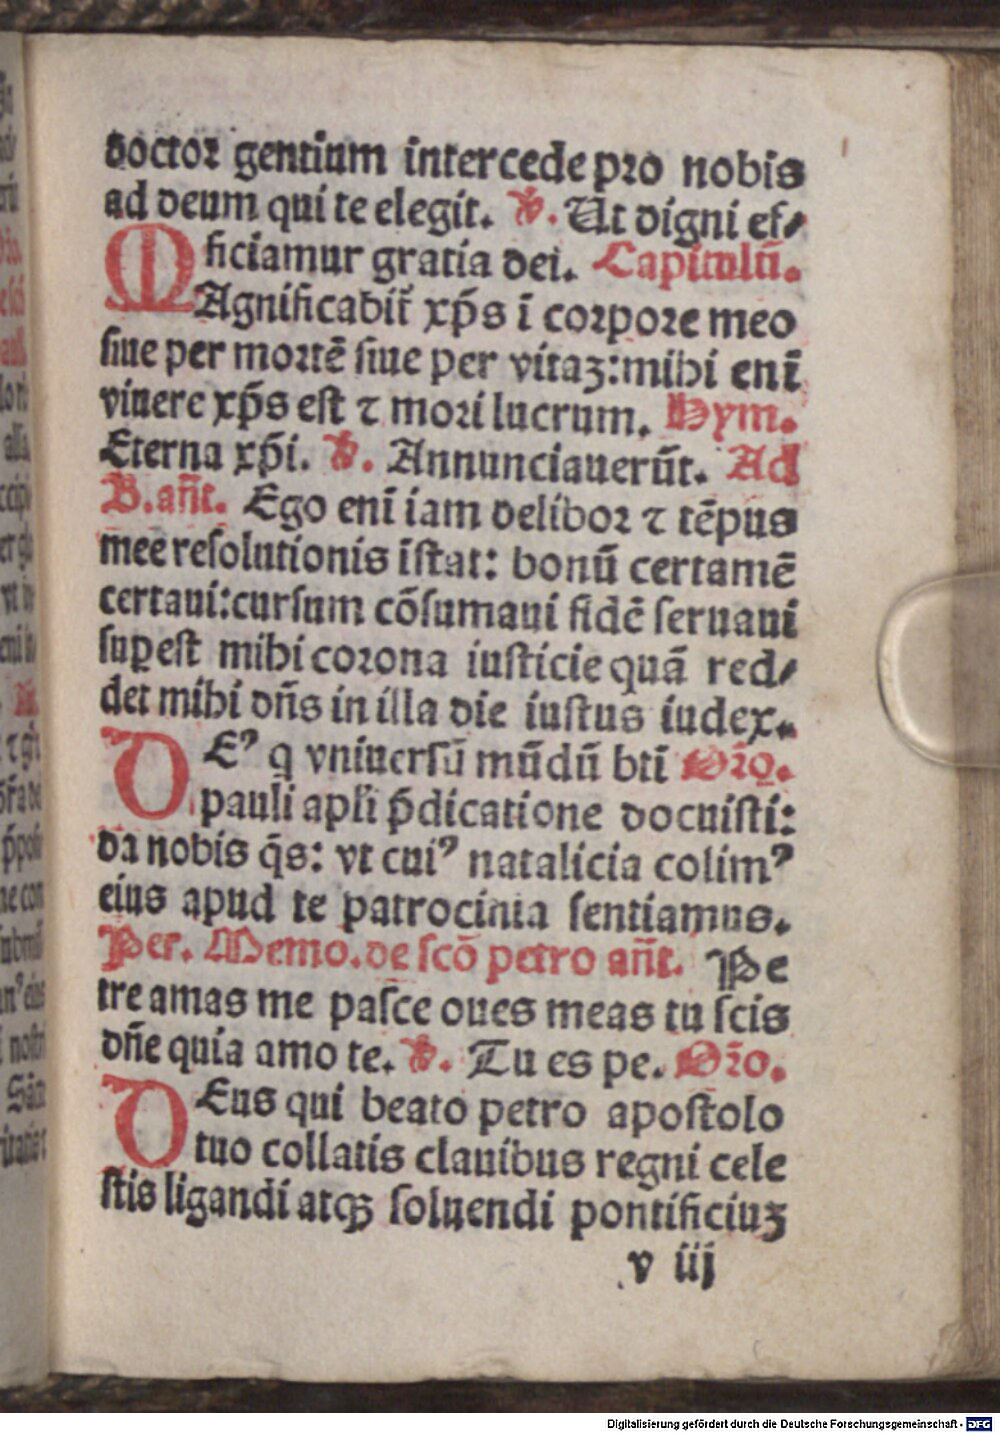 doctor gentium intercede pro nobis
ad deum qui te elegit. ℣. Ut digni ef⸗
ficiamur gratia dei. Capitulū.
MAgnificabit᷑ xp̄s ī corpore meo
siue per mortē siue per vitaꝫ: mihi enī
viuere xp̄s est ⁊ mori lucrum. Hym.
Eterna xp̄i. ℣. Annunciauerūt. Ad
B. añt. Ego enī iam delibor ⁊ tēpus
mee resolutionis īstat: bonū certamē
certaui: cursum cōsumaui fidē seruaui
suꝑest mihi corona iusticie quā red⸗
det mihi dñs in illa die iustus iudex.
DEꝰ q vniuersū mūdū btī Or̄o.
pauli apl̄i p̄dicatione docuisti:
da nobis q̄s: vt cuiꝰ natalicia colimꝰ
eius apud te patrocinia sentiamus.
Per. Memo. de scō petro añt. Pe
tre amas me pasce oues meas tu scis
dñe quia amo te. ℣. Tu es pe. Or̄o.
DEus qui beato petro apostolo
tuo collatis clauibus regni cele
stis ligandi atqꝫ soluendi pontificiuꝫ
v iij
Digitalisierung gefördert durch die Deutsche Forschungsgemeinschaft - DFG